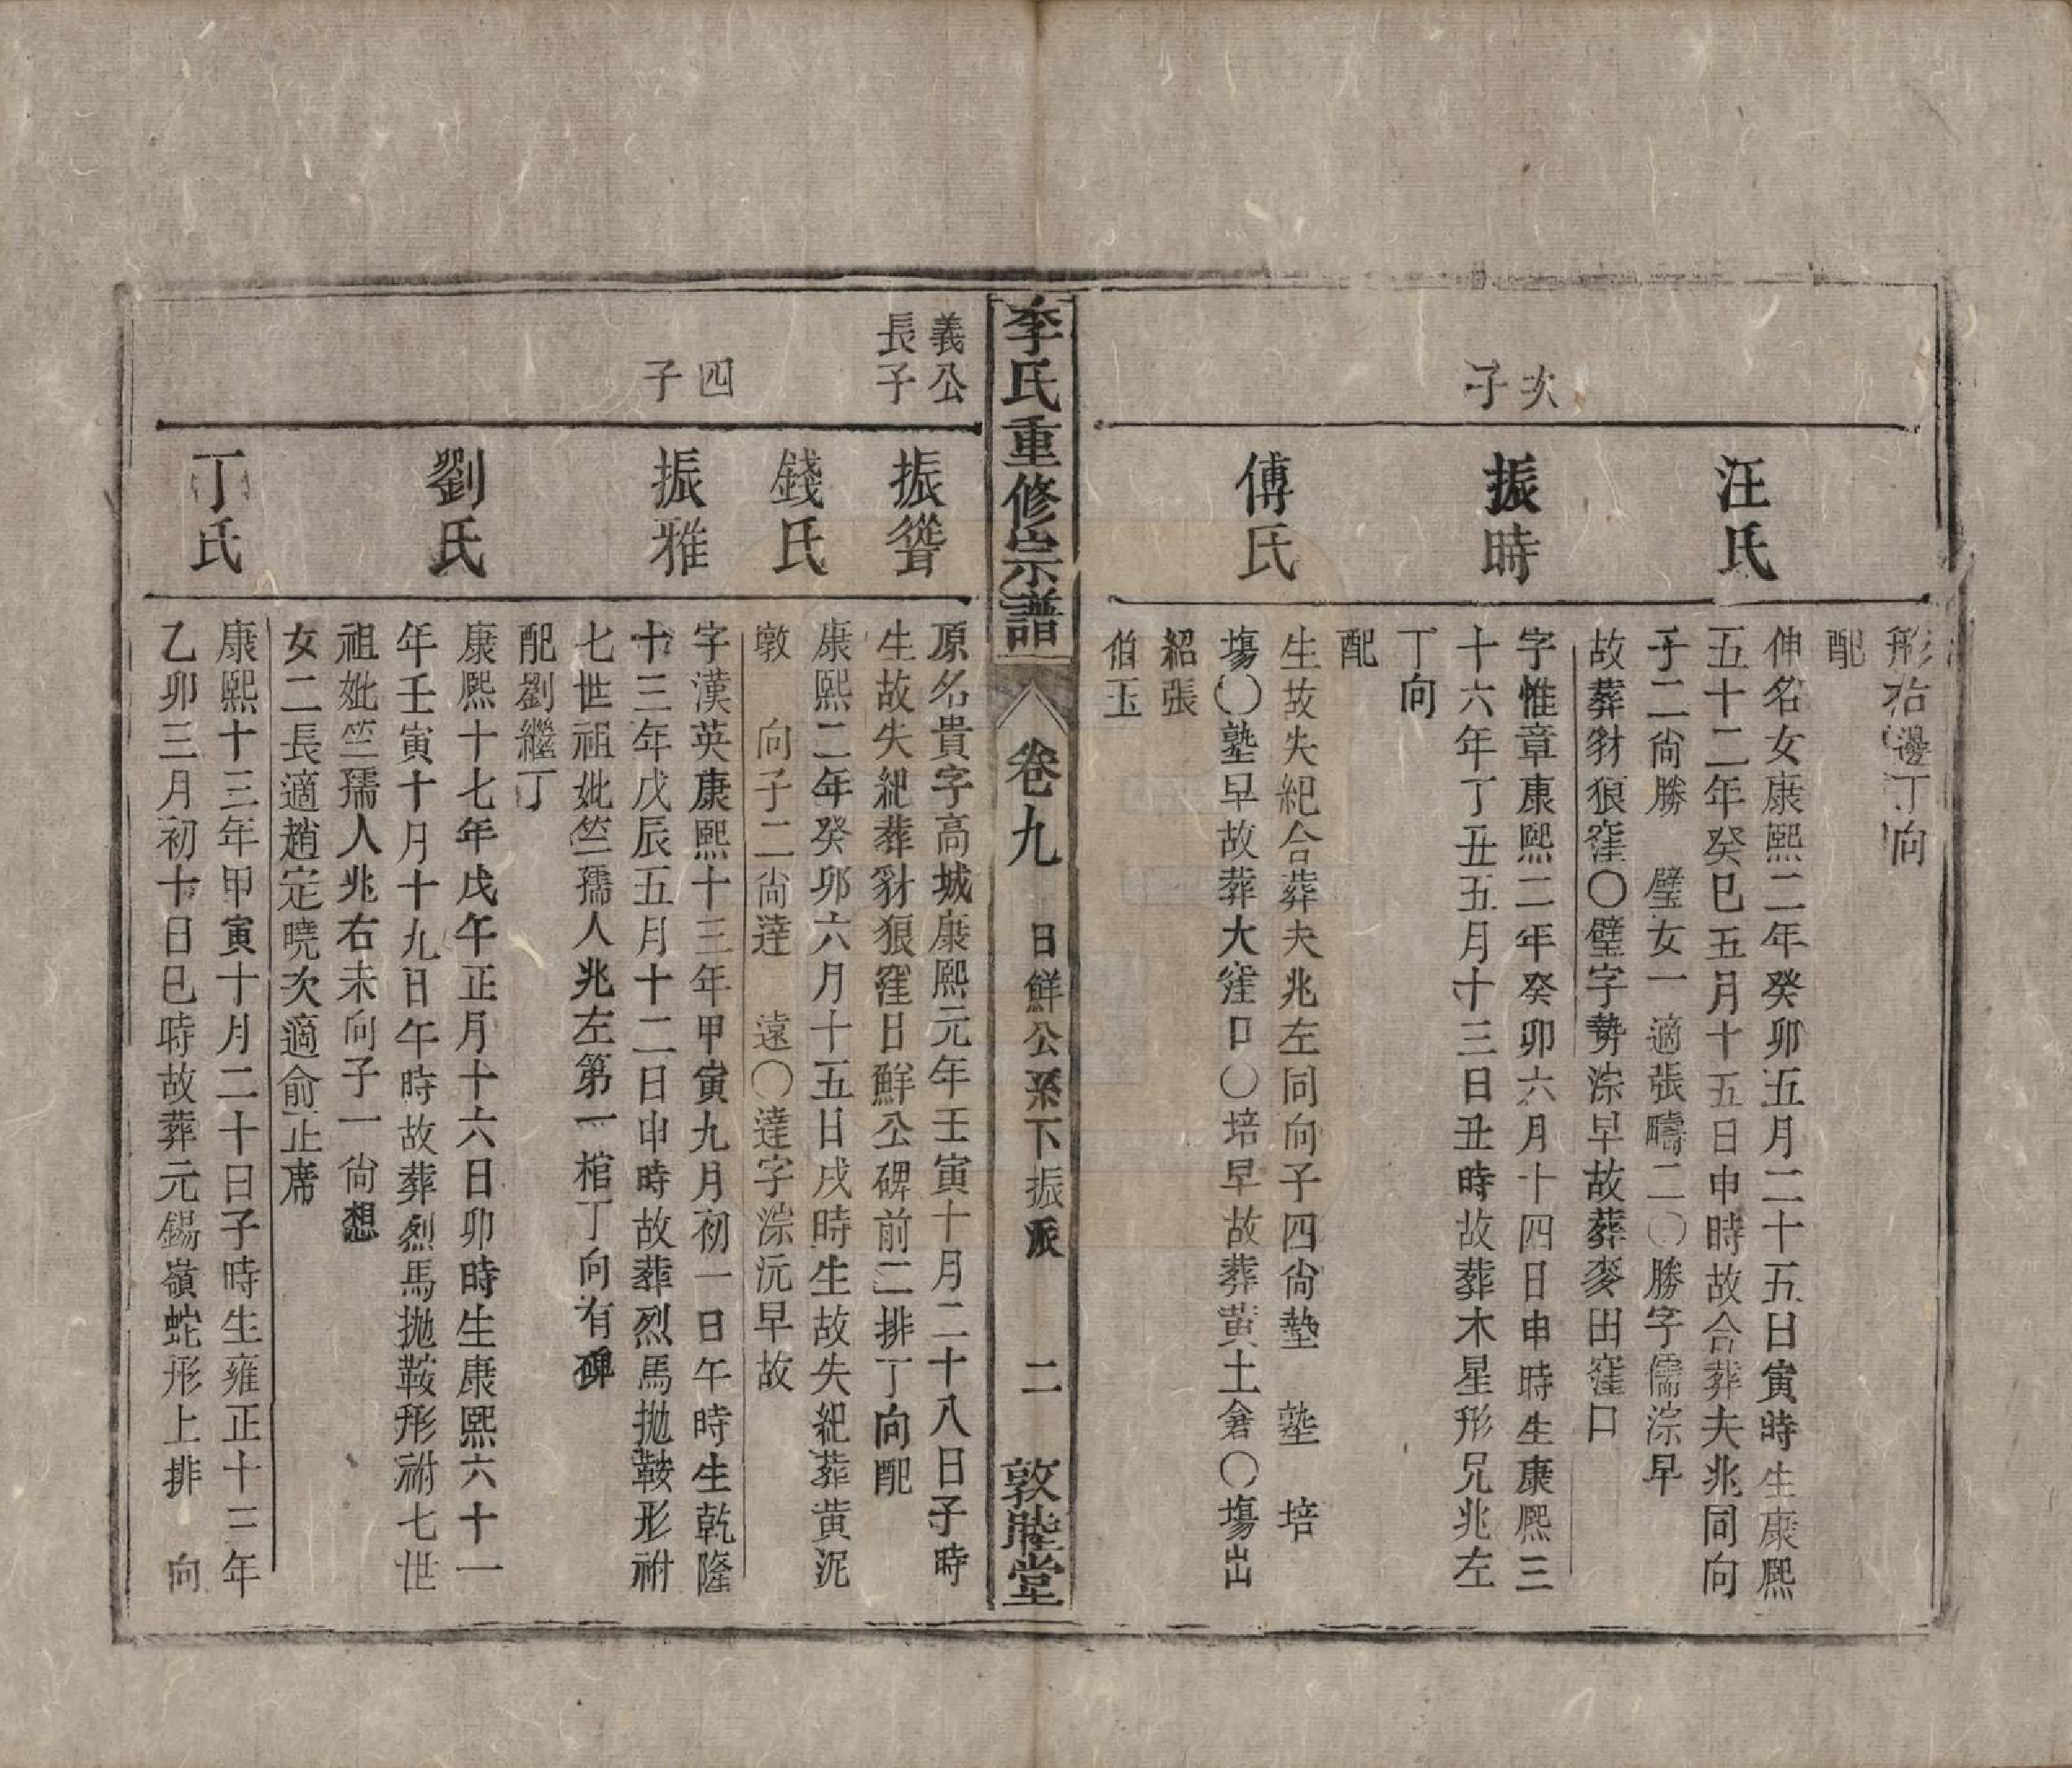 形右邊丁向
配
汪氏
伸名女康熙二年癸卯五月二十五日寅時生康熙
五十二年癸巳五月十五日申時故合葬夫兆同向
子二尙勝 璧女一 適張疇二〇勝字儒淙早
故葬豺狼窪〇璧字勢淙早故葬麥田窪口
次子
振時
字惟章康熙二年癸卯六月十四日申時生康熙三
十六年丁丑五月十三日丑時故葬木星形兄兆左
丁向
配
傅氏
生故失紀合葬夫兆左同向子四尙墊 塾 培
塲〇塾早故葬大窪口〇培早故葬黃土倉〇塲出
紹張
伯玉
李氏重修宗譜
卷九
日鮮公系下振派
二
敦睦堂
義公長子
振聳
原名貴字高城康熙元年壬寅十月二十八日子時
生故失紀葬豺狼窪日鮮公碑前二排丁向配
錢氏
康熙二年癸卯六月十五日戌時生故失紀葬黃泥
墩 向子二尙達 遠〇達字淙沅早故
四子
振雅
字漢英康熙十三年甲寅九月初一日午時生乾隆
十三年戊辰五月十二日申時故葬烈馬拋鞍形祔
七世祖妣竺孺人兆左第一棺丁向有碑
配劉繼丁
劉氏
康熙十七年戊午正月十六日卯時生康熙六十一
年壬寅十月十九日午時故葬烈馬拋鞍形祔七世
祖妣竺孺人兆右未向子一尙想
女二長適趙定曉次適俞止席
丁氏
康熙十三年甲寅十月二十日子時生雍正十三年
乙卯三月初十日巳時故葬元錫嶺蛇形上排 向